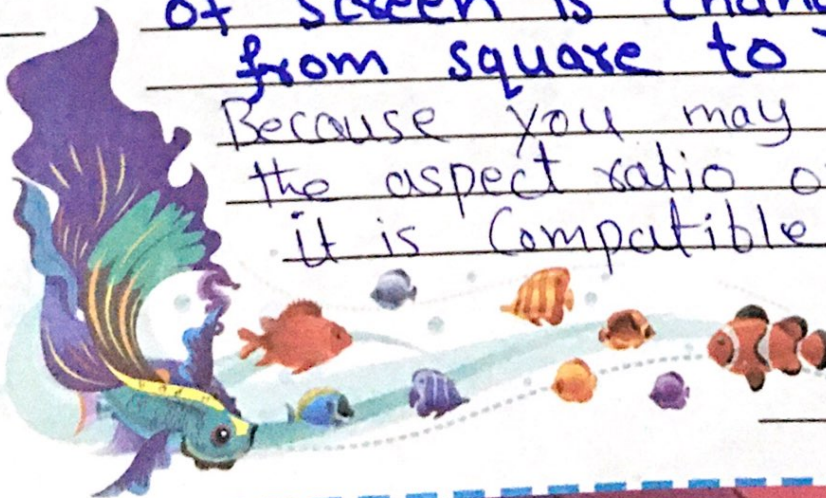 of screen is
from square to
Because you may
the aspect ratio
it is Compatible